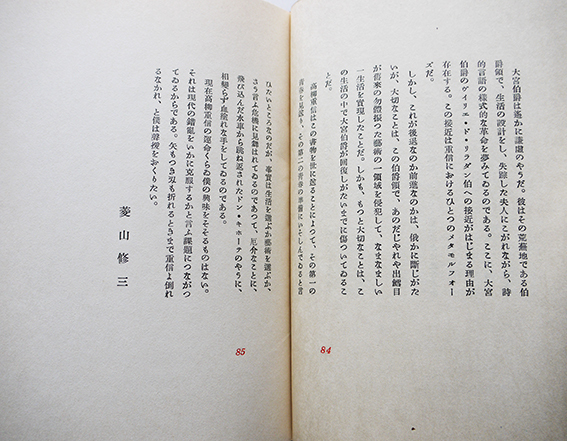 大宮伯爵は遙かに謙讓のやうだ。彼はその荒蕪地である伯
爵領で、生活の設計をし、失踪した夫人にこがれながら、詩
的言語の樣式的な革命を夢みてゐるのである。ここに、大宮
伯爵のヴィリエ・ド・リラダン伯への接近がはじまる理由が
存在する。この接近は重信におけるひとつのメタモルフォー
ズだ。
しかし、これが後退なのか前進なのかは、俄かに斷じがた
いが、大切なことは、この伯爵領で、あのだじゃれや出鱈目
が舊來の勿體振つた藝術の一領域を侵犯して、なまなましい
一生活を實現したことだ。しかも、もつと大切なことは、こ
の生活の中で大宮伯爵が回復しがたいまでに傷ついてゐるこ
とだ。
高柳重信はこの書物を世に送ることによつて、その第一の
靑春を見送り、その第二の靑春の準備にいそしんでゐると言
84
ひたいところなのだが、事實は生活を選ぶか藝術を選ぶか、
さう言ふ危機に見舞はれてゐるのであつて、厄介なことに、
飛び込んだ水車から跳ね返されたドン・キホーテのやうに、
相變らず血塗れな手をしてゐるのである。
現在高柳重信の運命くらゐ僕の興味をそそるものはない。
それは現代の錯亂をいかに克服するかと言ふ課題につながつ
てゐるからである。矢もつき刀も折れるときまで重信よ倒れ
るなかれ、と僕は聲援をおくりたい。
菱山修三
85